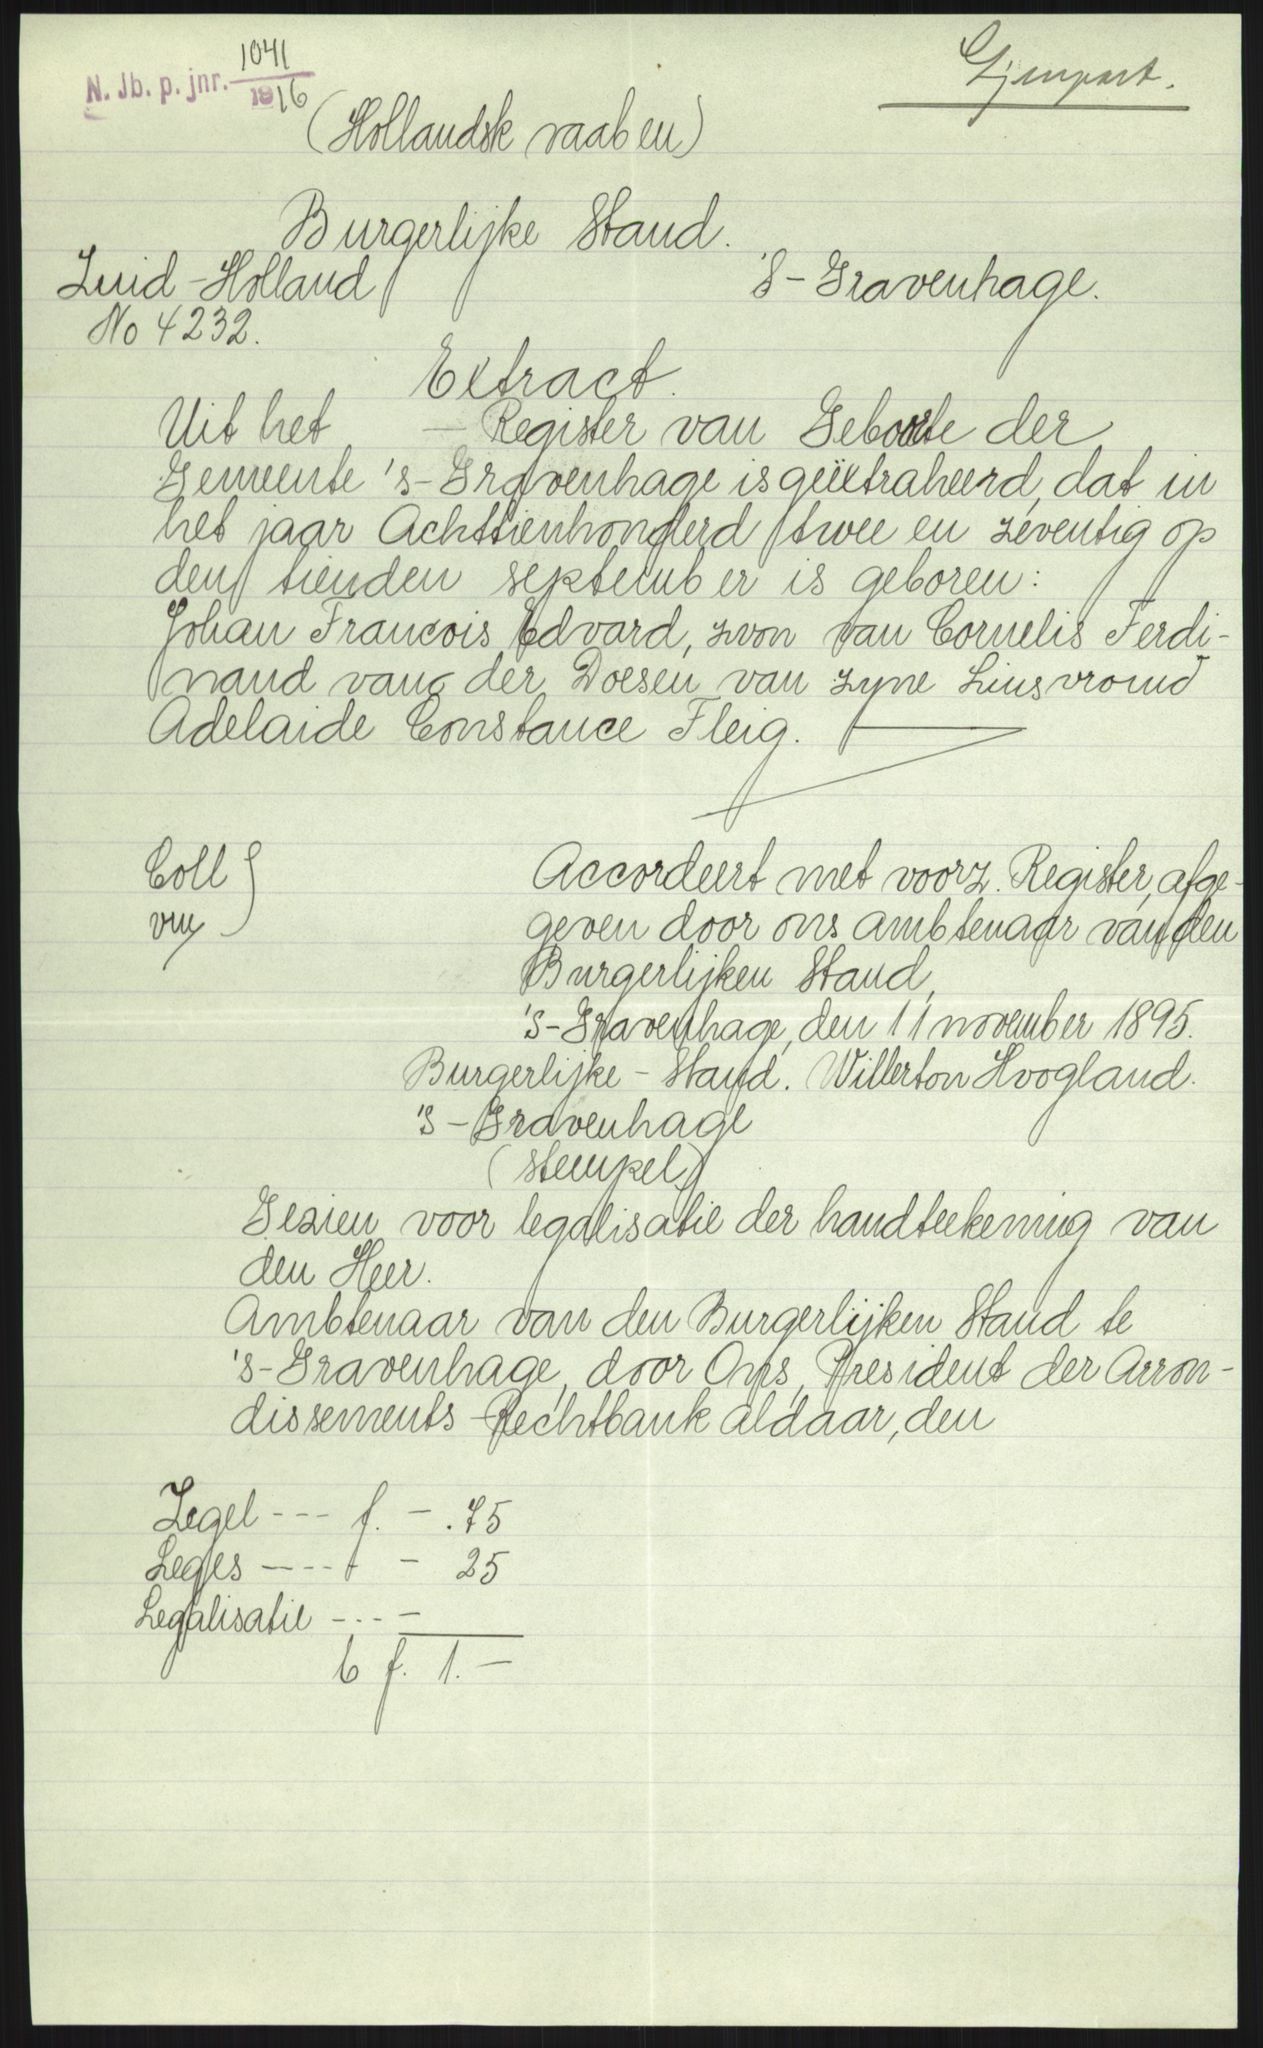 N. Jb. p. jnr. 1041
1916
Gjenpart.
(Hollandsk vaaben)
Burgerlijke Stand.
Zuid-Holland
'S-Gravenhage.
No 4232.
Extract.
Uit het — Register van Geboorte der
Gemeente 's-Gravenhage is geëxtraheerd, dat in
het jaar Achttienhonderd twee en zeventig op
den tienden september is geboren:
Johan Francois Edvard, zoon van Cornelis Ferdi-
nand van der Doesen van zyne
Adelaide Constance Fleig.
Coll
Accordeert met voorz. Register, afge-
geven door ons ambtenaar van den
Burgerlijken Stand,
's-Gravenhage, den 11 november 1895.
Burgerlijke-Stand. Willerton Hoogland.
's-Gravenhage
(stempel)
Gezien voor legalisatie der handteekening van
den Heer.
Ambtenaar van den Burgerlijken Stand te
's-Gravenhage, door Ons, President der Arron-
dissements-Rechtbank aldaar, den
Zegel --- f. - .75
Leges ---- - 25
Legalisatie --- -
f. 1.-